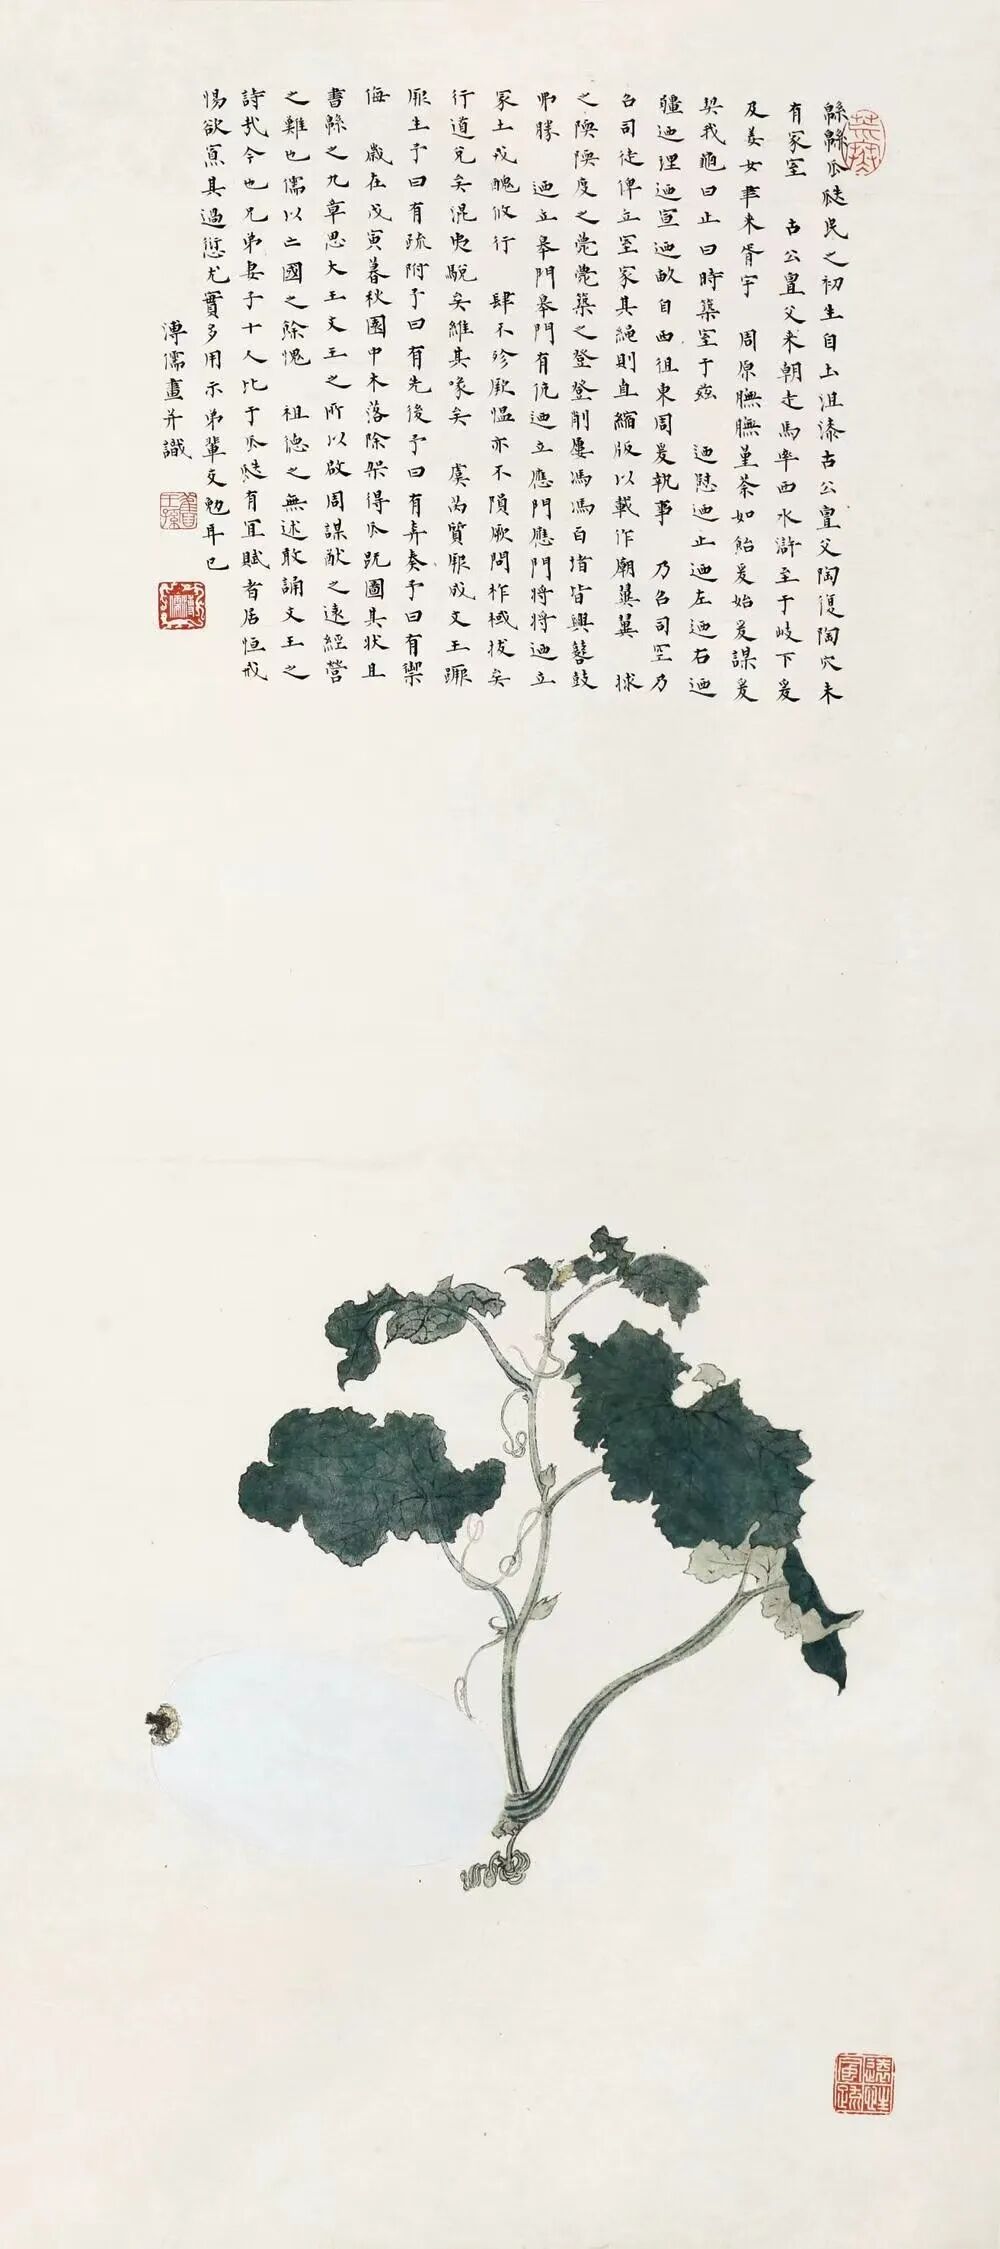 緜緜瓜瓞民之初生自土沮漆古公亶父陶復陶穴未
有家室 古公亶父来朝走馬率西水滸至于岐下爰
及姜女聿来胥宇 周原膴膴堇荼如飴爰始爰謀爰
契我龜曰止曰時築室于兹 迺慰迺止迺左迺右迺
疆迺理迺宣迺畝自西徂東周爰執事 乃召司空乃
召司徒俾立室家其繩則直縮版以載作廟翼翼 捄
之陾陾度之薨薨築之登登削屢馮馮百堵皆興鼛鼓
弗勝 迺立皋門皋門有伉迺立應門應門將將迺立
冢土戎醜攸行 肆不殄厥愠亦不隕厥問柞棫拔矣
行道兌矣混夷駾矣維其喙矣 虞芮質厥成文王蹶
厥生予曰有疏附予曰有先後予曰有奔奏予曰有禦
侮 歲在戊寅暮秋園中木落除架得瓜既圖其狀且
書緜之九章思大王文王之所以啟周謀猷之遠經營
之難也儒以亡國之餘愧 祖德之無述敢誦文王之
詩哉今也兄弟妻子十人比于瓜瓞有宜賦者居恒戒
惕欲寡其過愆尤實多用示弟輩交勉耳已
溥儒畫并識
舊王孫